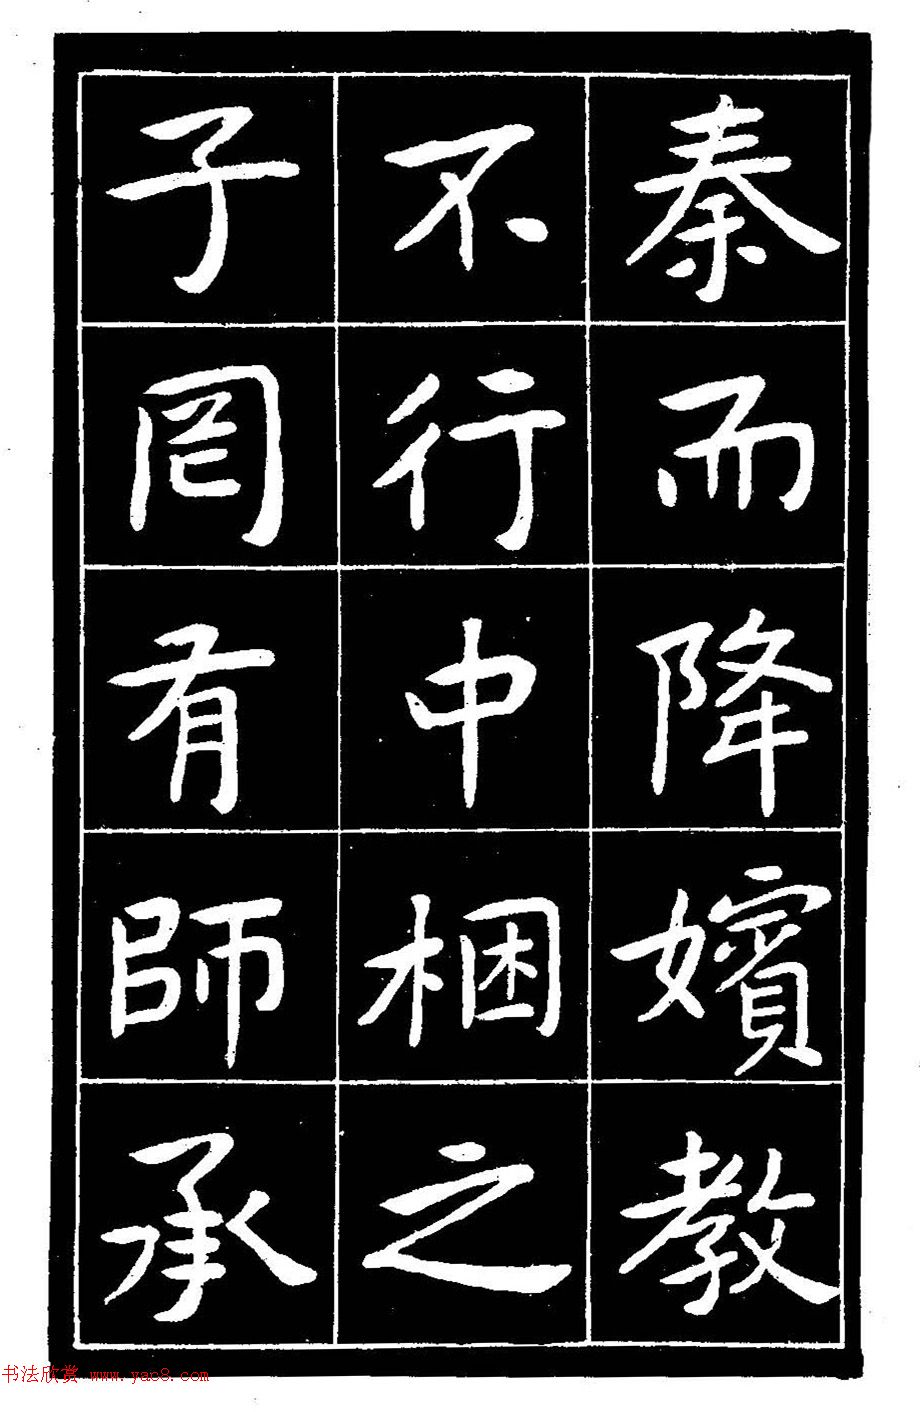 秦而降嬪教
不行中梱之
子罔有師承
书法欣赏 www.yac8.com